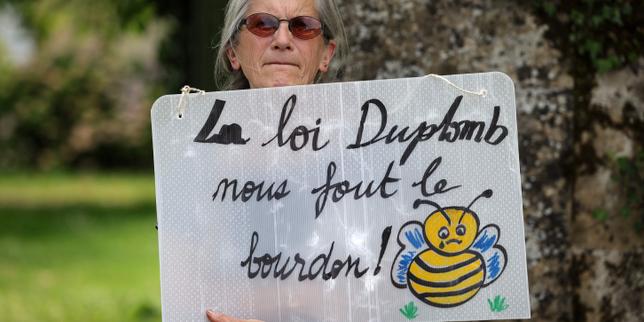 La loi Duplomb
nous fout le
bourdon!